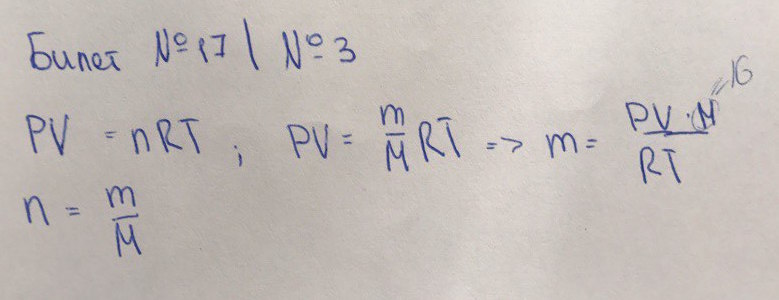 Билет №17 | №3
PV = nRT ; PV = m/M RT => m = PV · M / RT = 16
n = m/M